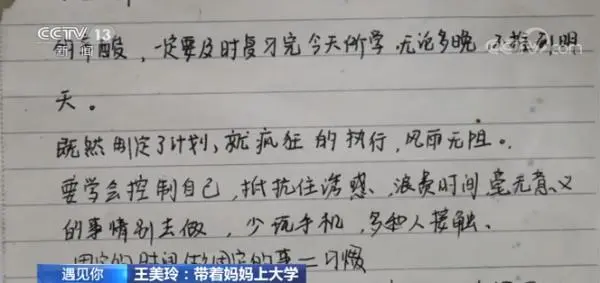 CCTV 13
新闻
CCTV.com
的辛酸，一定要及时复习完今天所学，无论多晚 不推到明
天。
既然制定了计划，就疯狂的执行，风雨无阻。
要学会控制自己，抵抗住诱惑、浪费时间毫无意义
的事情别去做，少玩手机，多和人接触、
固定的时间做固定的事=习惯
遇见你
王美玲：带着妈妈上大学